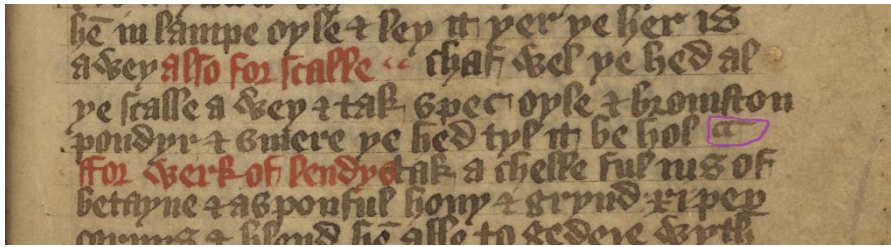 hē in lampe oyle & ley it yer ye her is
a wey also for scalle chaf wel ye hed al
ye scalle a wey & tak spec oyle & bromston
poudyr & smere ye hed tyl it be hol
ffor werk of lendys tak a chelle ful ius of
betayne & a sponful hony & grynd xi peper
cornys & blend hē alle to gedere wyth